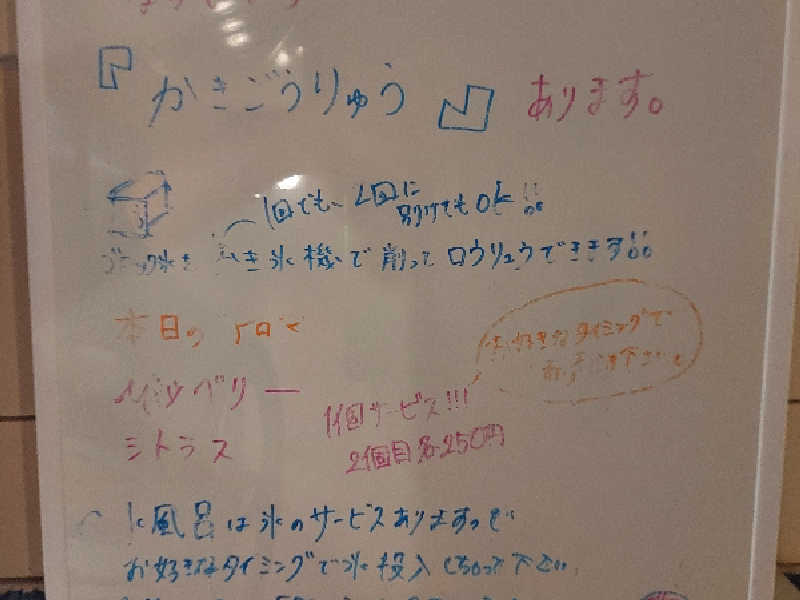 『かきごうりゅう』あります。
1回でも、2回に
別けてもOK!!
ブロック氷を かき氷機で削ってロウリュウできます!!
本日のアロマ
お好きなタイミングで
下さい
ベリー
シトラス
1個サービス!!!
2個目〜250円
水風呂は氷のサービスありますので
お好きなタイミングで氷投入しちゃって下さい